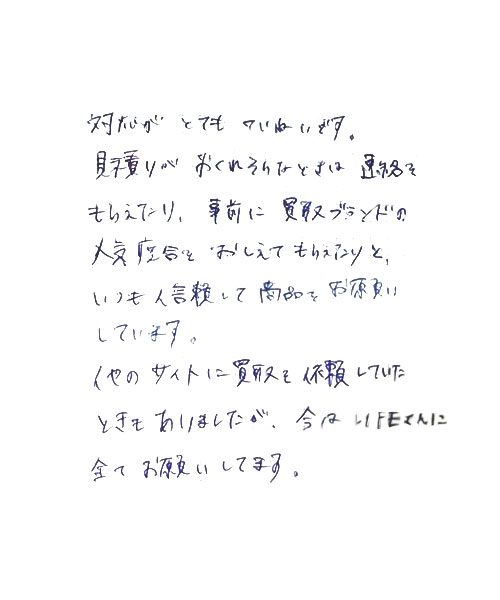 対応がとてもていねいです。
見積りがおくれそうなときは連絡を
もらえたり、事前に買取ブランドの
人気度合をおしえてもらえたりと、
いつも信頼して商品をお願い
しています。
他のサイトに買取を依頼していた
ときもありましたが、今はLIFEさんに
全てお願いしてます。